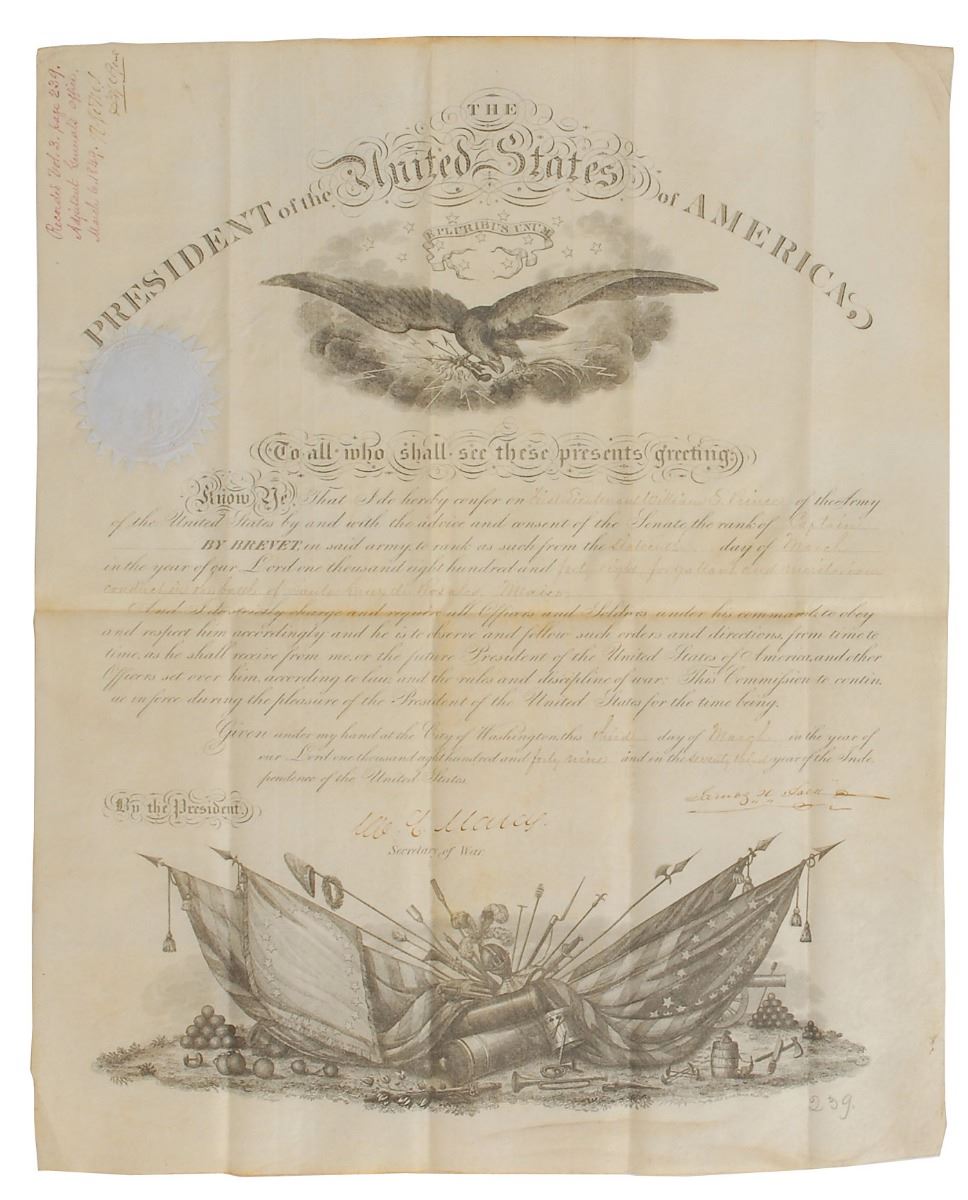 Recorded Vol. 3. page 239.
Adjutant General's Office,
March 6. 1849.
THE
PRESIDENT of the United States of AMERICA,
E PLURIBUS UNUM
To all who shall see these presents greeting:
Know Ye, That I do hereby confer on First Lieutenant William E. Prince of the Army
of the United States by and with the advice and consent of the Senate the rank of Captain
BY BREVET in said army, to rank as such from the sixteenth day of March
in the year of our Lord one thousand eight hundred and forty eight for gallant and meritorious
conduct in the battle of Santa Cruz de Rosales, Mexico
And I do strictly charge and require all Officers and Soldiers under his command, to obey
and respect him accordingly and he is to observe and follow such orders and directions, from time to
time, as he shall receive from me, or the future President of the United States of America, and other
Officers set over him, according to law, and the rules and discipline of war: This Commission to contin
ue in force during the pleasure of the President of the United States for the time being.
Given under my hand at the City of Washington, this third day of March in the year of
our Lord one thousand eight hundred and forty nine and in the seventy third year of the Inde
pendence of the United States.
James K. Polk
By the President,
W. L. Marcy.
Secretary of War
239.